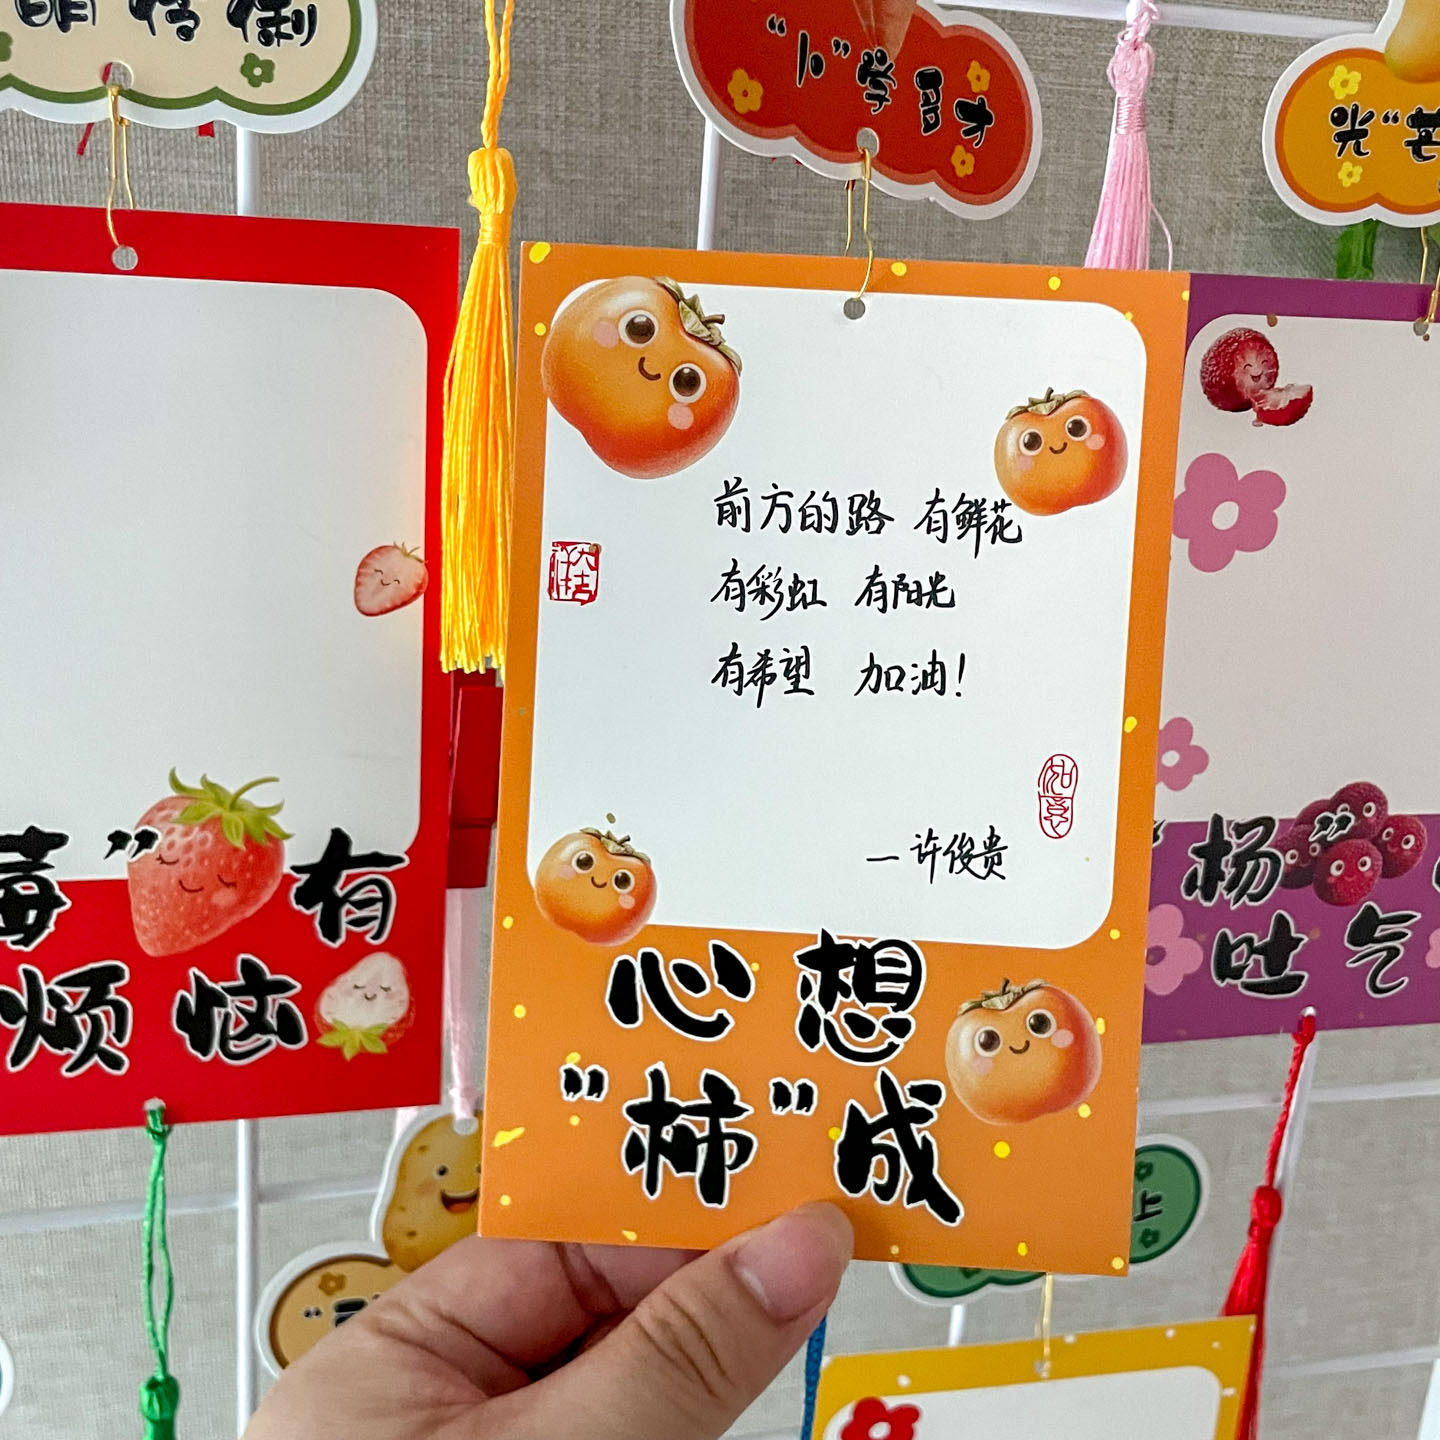 "卜"学多才
光"芒
前方的路 有鲜花
有彩虹 有阳光
有希望 加油!
如意
— 许俊贵
心想
"柿"成
莓"有
烦恼
"杨"
吐气
上